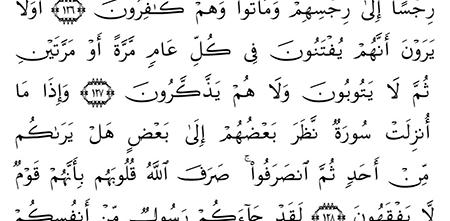 رِجْسًا إِلَىٰ رِجْسِهِمْ وَمَاتُوا۟ وَهُمْ كَـٰفِرُونَ ١٢٦ أَوَلَا
يَرَوْنَ أَنَّهُمْ يُفْتَنُونَ فِى كُلِّ عَامٍ مَّرَّةً أَوْ مَرَّتَيْنِ
ثُمَّ لَا يَتُوبُونَ وَلَا هُمْ يَذَّكَّرُونَ ١٢٧ وَإِذَا مَا
أُنزِلَتْ سُورَةٌ نَّظَرَ بَعْضُهُمْ إِلَىٰ بَعْضٍ هَلْ يَرَىٰكُم
مِّنْ أَحَدٍ ثُمَّ ٱنصَرَفُوا۟ ۚ صَرَفَ ٱللَّهُ قُلُوبَهُم بِأَنَّهُمْ قَوْمٌ
لَّا يَفْقَهُونَ ١٢٨ لَقَدْ جَآءَكُمْ رَسُولٌ مِّنْ أَنفُسِكُمْ